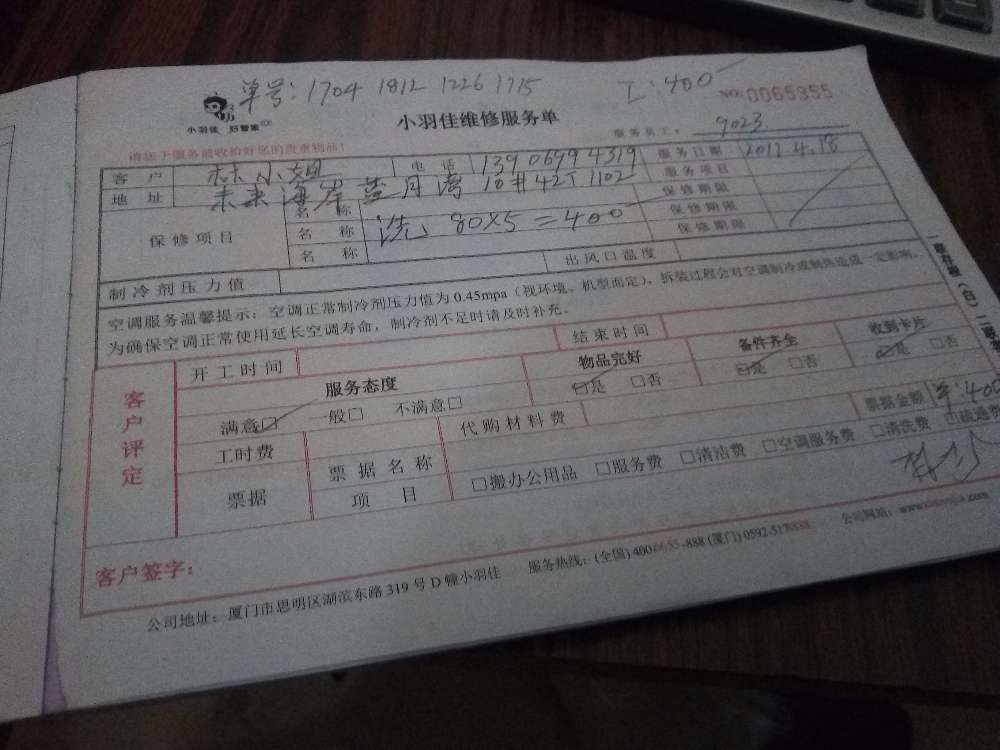 单号: 1704 1812 1226 1715 工:400
NO:0065355
小羽佳 好管家
小羽佳维修服务单
服务员工: 9023
请您于服务前收拾好您的贵重物品!
客户 林小姐 电话 13906994319 服务日期 2017.4.18
地址 未来海岸蓝月湾10#42T1102 服务项目
保修项目 名称 洗 80X5=400 保修期限
名称 保修期限
名称 保修期限
制冷剂压力值 出风口温度
空调服务温馨提示:空调正常制冷剂压力值为0.45mpa(视环境、机型而定),拆装过程会对空调制冷或制热造成一定影响。
为确保空调正常使用延长空调寿命,制冷剂不足时请及时补充。
客户评定 开工时间 结束时间
服务态度 物品完好 备件齐全 收到卡片
满意□ 一般□ 不满意□ □是 □否 □是 □否 □是 □否
工时费 代购材料费 票据金额 ¥:400
票据 票据名称
项目 □搬办公用品 □服务费 □清洁费 □空调服务费 □清洗费 □疏通费
客户签字:
公司地址:厦门市思明区湖滨东路319号D幢小羽佳 服务热线:(全国)4006655-888(厦门)0592-5178888 公司网站: